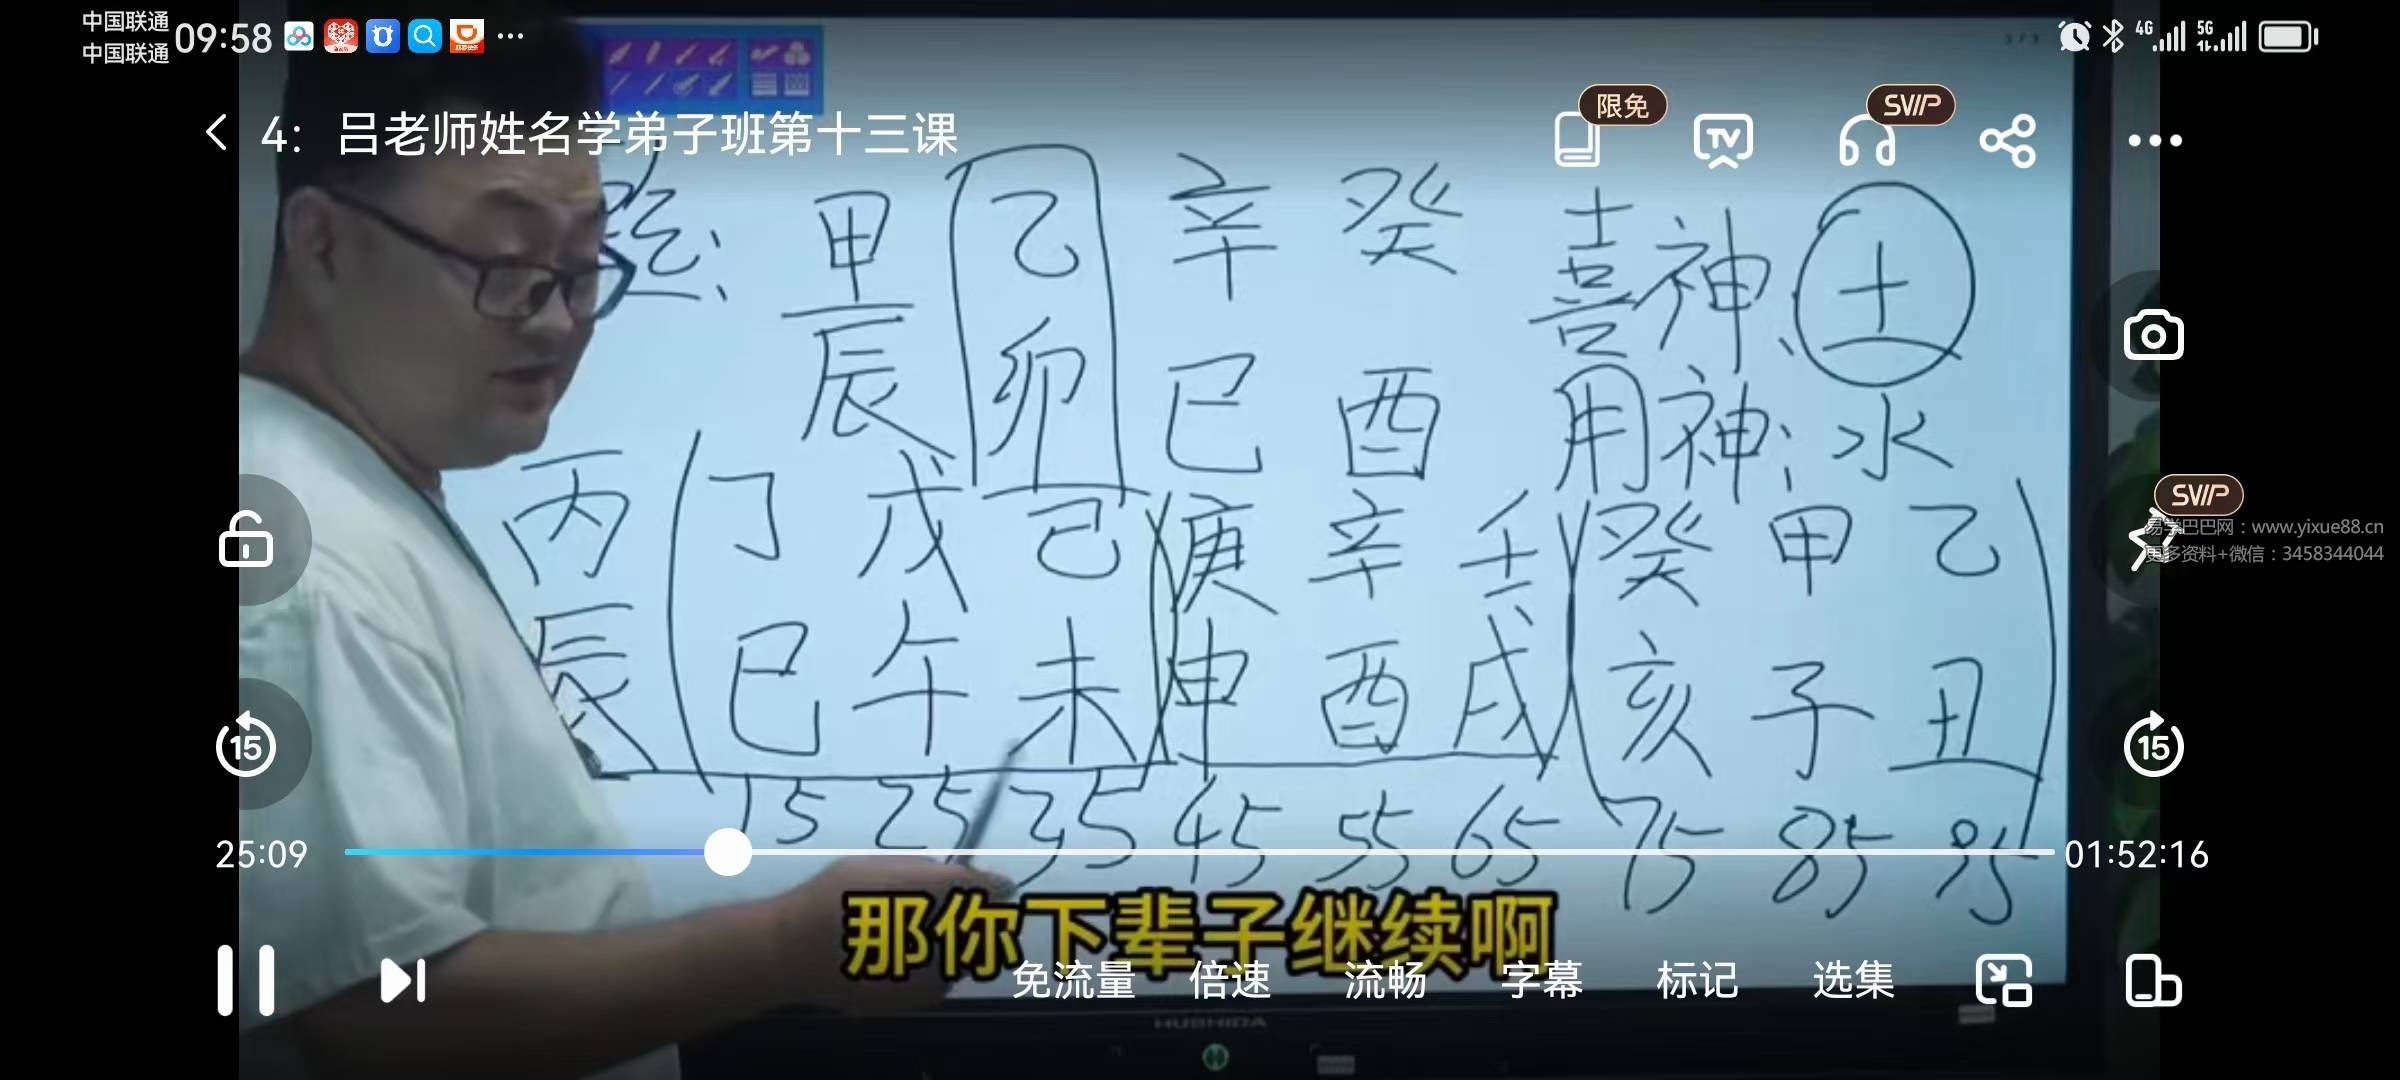 中国联通
中国联通 09:58 4G 5G
4: 吕老师姓名学弟子班第十三课 限免 TV SVIP
甲 乙 辛 癸 喜神: 土
辰 卯 巳 酉 用神: 水
SVIP
丙 丁 戊 己 庚 辛 壬 癸 甲 乙
易学巴巴网：www.yixue88.cn
更多资料+微信：3458344044
辰 巳 午 未 申 酉 戌 亥 子 丑
15 15
15 25 35 45 55 65 75 85 95
25:09 01:52:16
那你下辈子继续啊
免流量 倍速 流畅 字幕 标记 选集
HUSHIDA